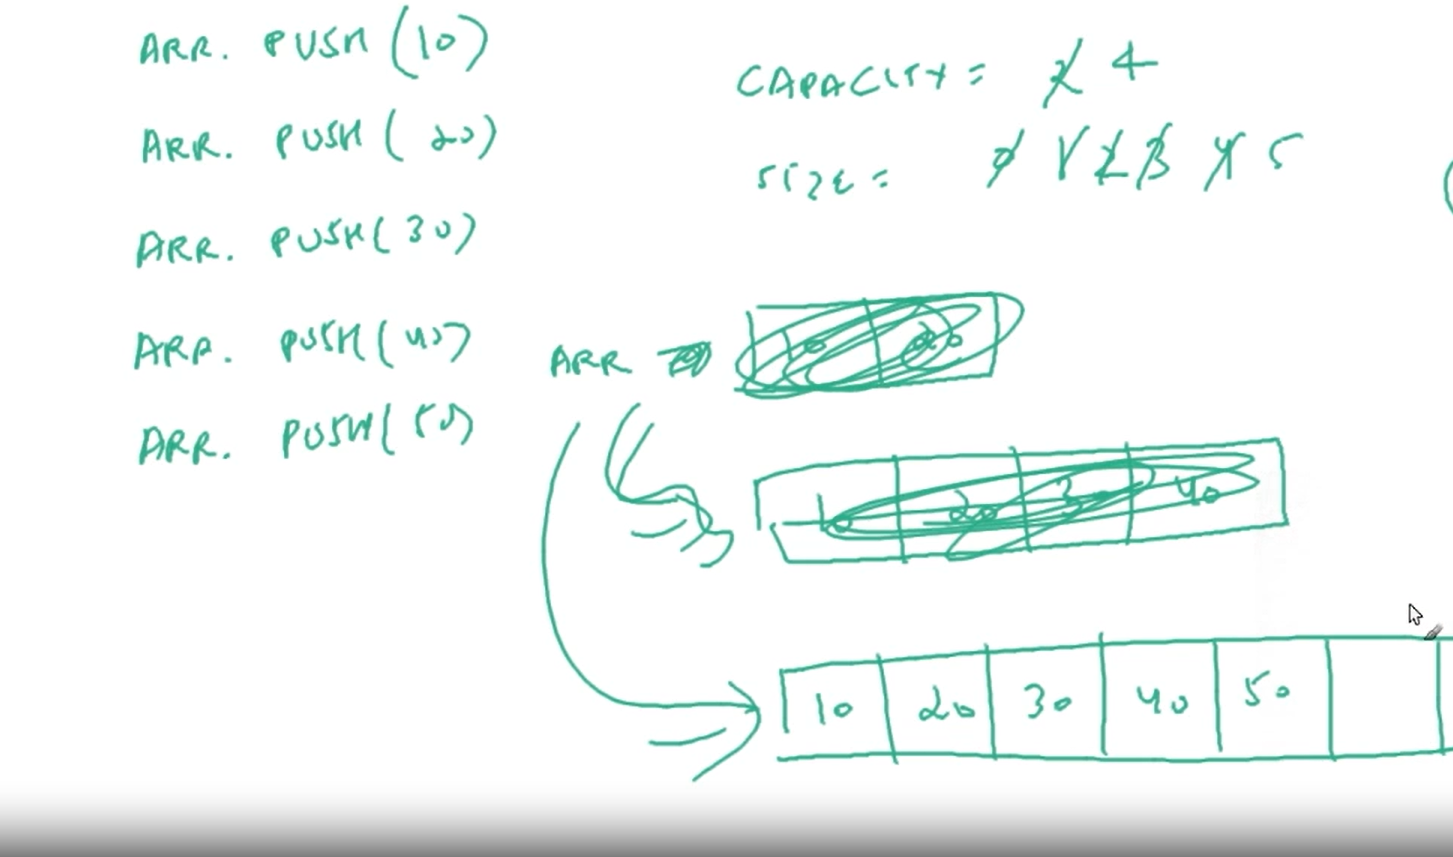 ARR. PUSH(10)
ARR. PUSH(20)
ARR. PUSH(30)
ARR. PUSH(40)
ARR. PUSH(50)
CAPACITY = 2 4
SIZE = 0 1 2 3 4 5
ARR
20
10 20 30 40
10 20 30 40 50